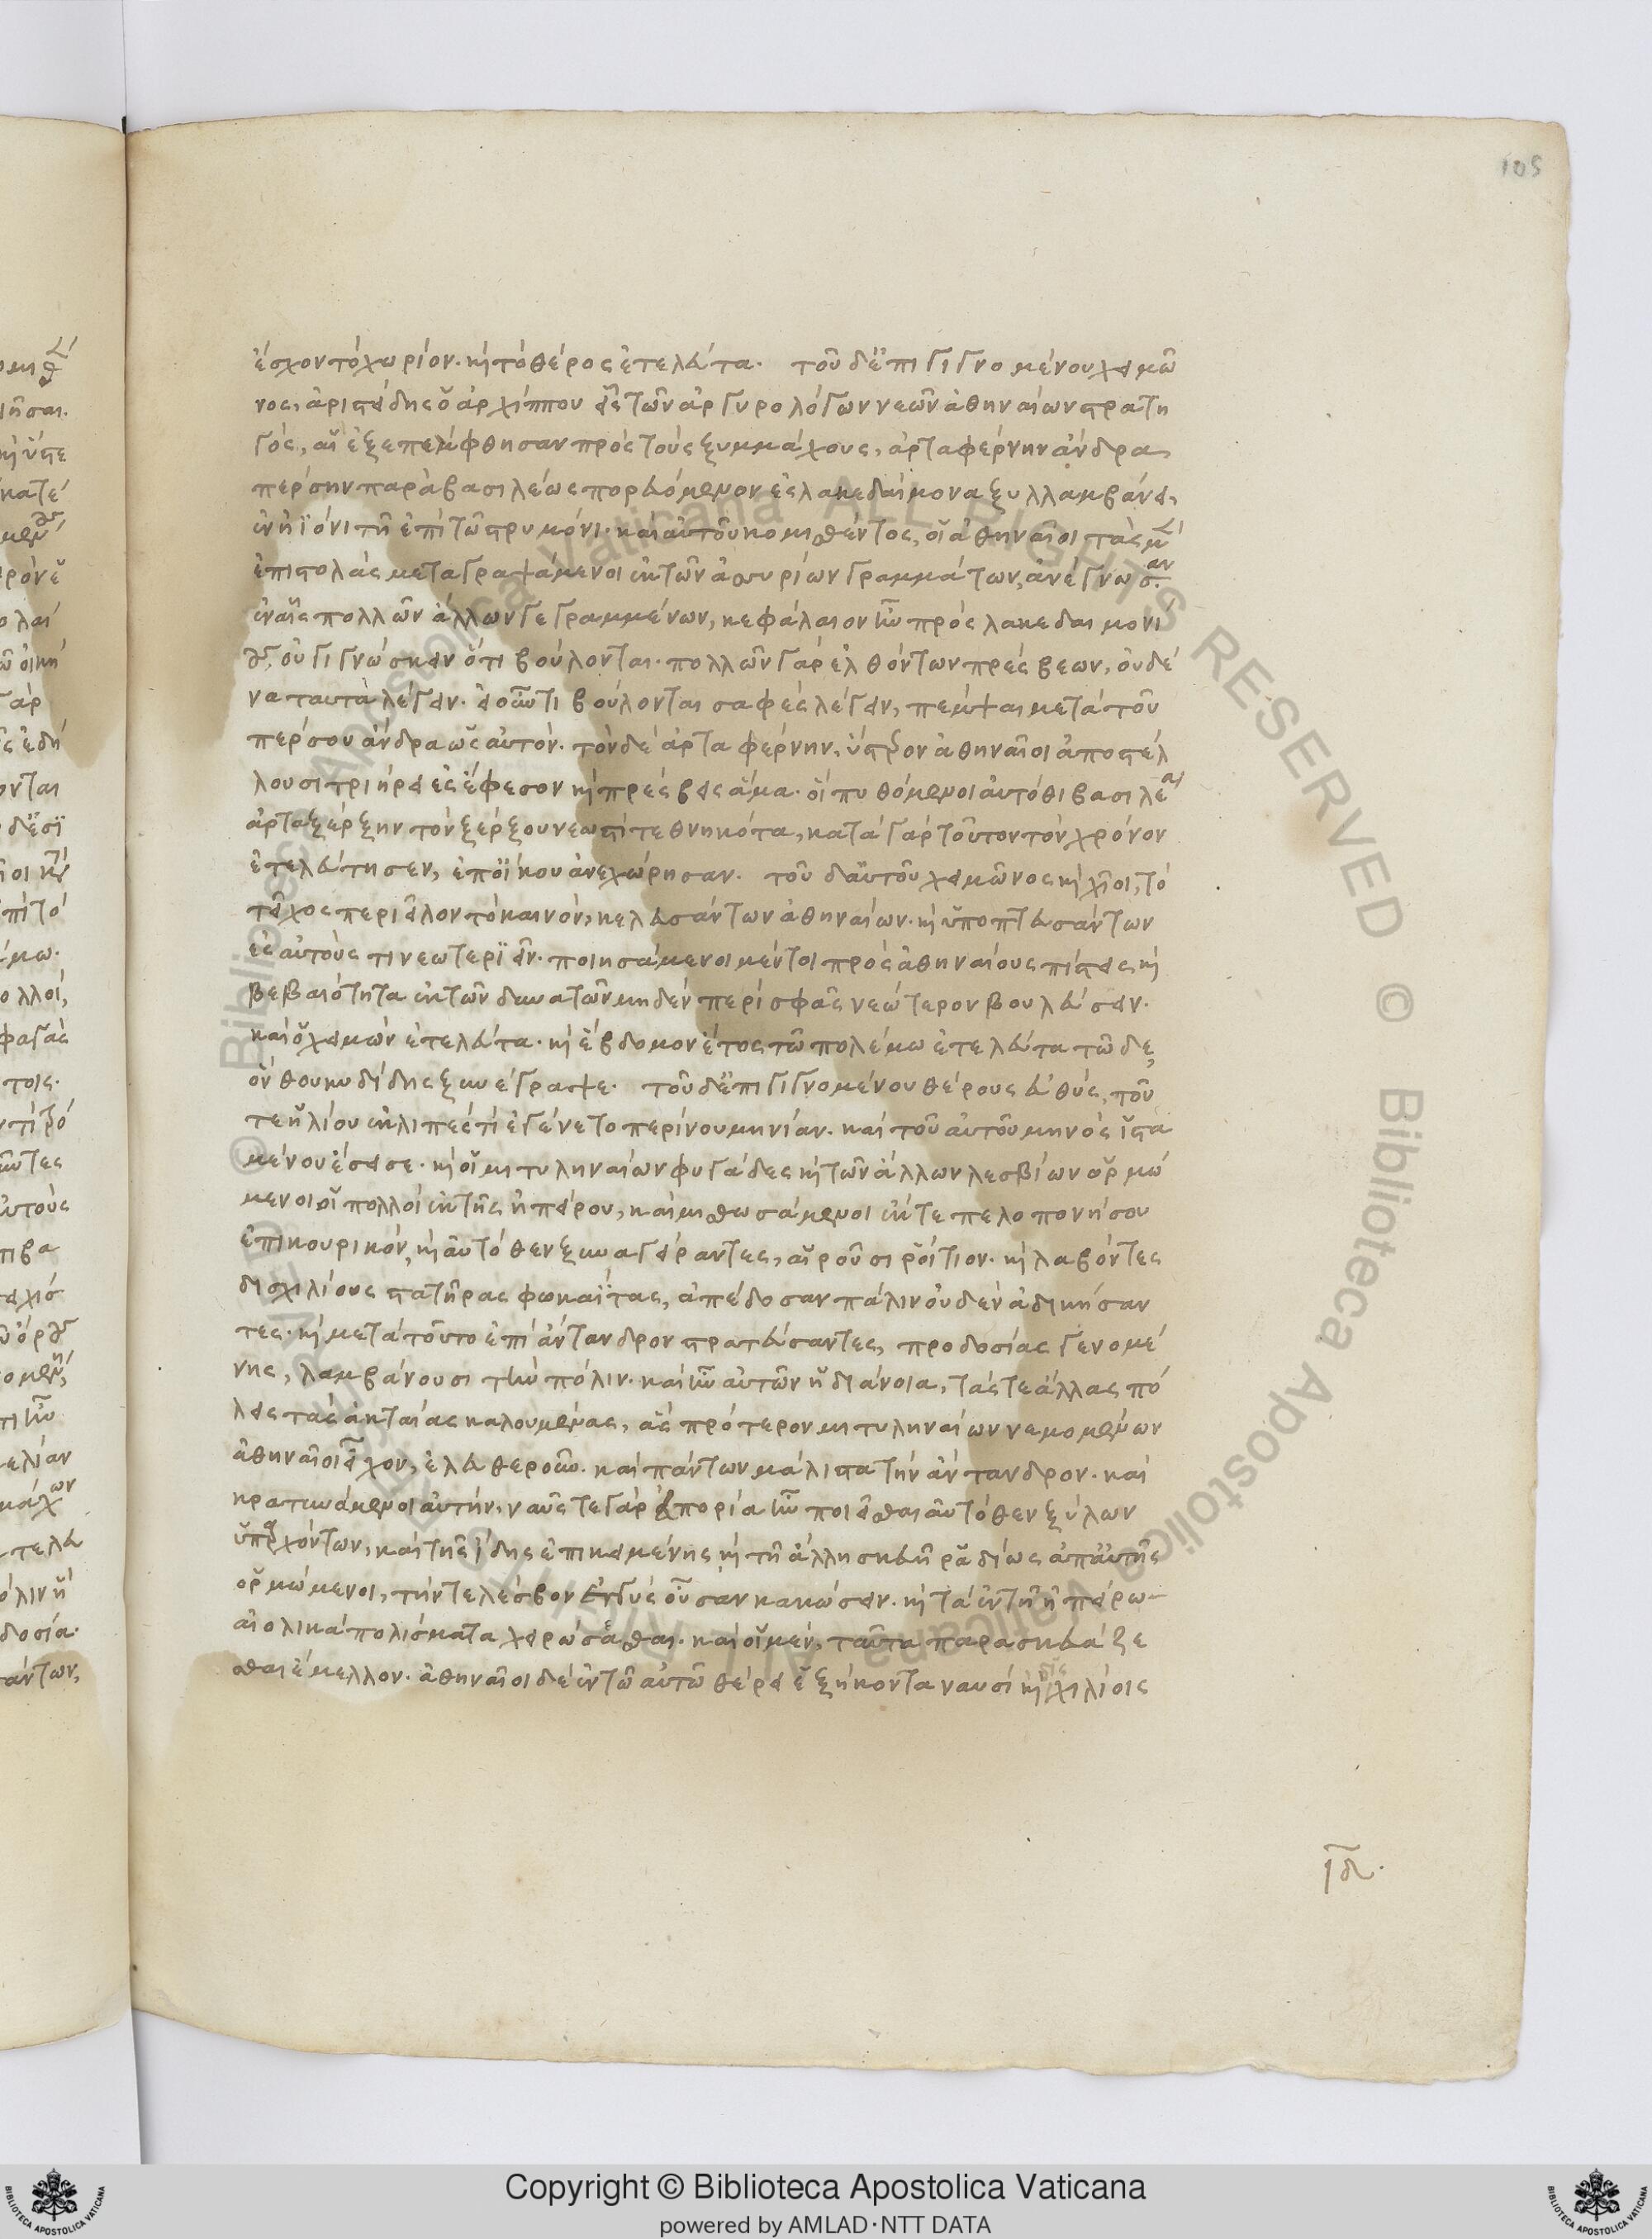 105
ἔσχον τὸ χωρίον. κὶ τὸ θέρος ἐτελεύτα. τοῦ δ' ἐπιγιγνομένου χειμῶ
νος, ἀριστείδης ὁ ἀρχίππου εἷς τῶν ἀργυρολόγων νεῶν ἀθηναίων στρατη
γός, αἳ ἐξεπέμφθησαν πρὸς τοὺς ξυμμάχους, ἀρταφέρνην ἄνδρα
πέρσην παρὰ βασιλέως πορευόμενον ἐς λακεδαίμονα ξυλλαμβάνει,
ἐν ἠϊόνι τῆ ἐπὶ τῶ στρυμόνι. καὶ αὐτοῦ κομισθέντος, οἱ ἀθηναῖοι τὰς μὲν
ἐπιστολὰς μεταγραψάμενοι ἐκ τῶν ἀσσυρίων γραμμάτων, ἀνέγνωσαν.
ἐν αἷς πολλῶν ἄλλων γεγραμμένων, κεφάλαιον ἦν πρὸς λακεδαιμονί
ους, οὐ γιγνώσκειν ὅτι βούλονται. πολλῶν γὰρ ἐλθόντων πρέσβεων, οὐδέ
να ταυτὰ λέγειν. εἰ οὖν τι βούλονται σαφὲς λέγειν, πέμψαι μετὰ τοῦ
πέρσου ἄνδρα ὡς αὐτόν. τὸν δὲ ἀρταφέρνην, ὕστερον ἀθηναῖοι ἀποστέλ
λουσι τριήρει ἐς ἔφεσον κὶ πρέσβεις ἅμα. οἳ πυθόμενοι αὐτόθι βασιλέα
ἀρταξέρξην τὸν ξέρξου νεωστὶ τεθνηκότα, κατὰ γὰρ τοῦτον τὸν χρόνον
ἐτελεύτησεν, ἐπ' οἴκου ἀνεχώρησαν. τοῦ δ' αὐτοῦ χειμῶνος κὶ χῖοι, τὸ
τεῖχος περιεῖλον τὸ καινόν, κελευσάντων ἀθηναίων. κὶ ὑποπτευσάντων
ἐς αὐτούς τι νεωτεριεῖν. ποιησάμενοι μέντοι πρὸς ἀθηναίους πίστεις κὶ
βεβαιότητα ἐκ τῶν δυνατῶν μηδὲν περὶ σφᾶς νεώτερον βουλεύσειν.
καὶ ὁ χειμὼν ἐτελεύτα. κὶ ἕβδομον ἔτος τῶ πολέμω ἐτελεύτα τῶδε,
ὃν θουκυδίδης ξυνέγραψε. τοῦ δ' ἐπιγιγνομένου θέρους εὐθὺς, τοῦ
τε ἡλίου ἐκλιπές τι ἐγένετο περὶ νουμηνίαν. καὶ τοῦ αὐτοῦ μηνὸς ἱστα
μένου ἔσεισε. κὶ οἱ μιτυληναίων φυγάδες κὶ τῶν ἄλλων λεσβίων ὁρμώ
μενοι οἱ πολλοὶ ἐκ τῆς ἠπείρου, καὶ μισθωσάμενοι ἔκ τε πελοπονήσου
ἐπικουρικόν, κὶ αὐτόθεν ξυναγείραντες, αἱροῦσι ῥοίτιον. κὶ λαβόντες
δισχιλίους στατῆρας φωκαΐτας, ἀπέδοσαν πάλιν οὐδὲν ἀδικήσαν
τες. κὶ μετὰ τοῦτο ἐπὶ ἄντανδρον στρατεύσαντες, προδοσίας γενομέ
νης, λαμβάνουσι τὴν πόλιν. καὶ ἦν αὐτῶν ἡ διάνοια, τάς τε ἄλλας πό
λεις τὰς ἀκταίας καλουμένας, ἃς πρότερον μιτυληναίων νεμομένων
ἀθηναῖοι εἶχον, ἐλευθεροῦν. καὶ πάντων μάλιστα τὴν ἄντανδρον. καὶ
κρατυνάμενοι αὐτήν, ναῦς τε γὰρ εὐπορία ἦν ποιεῖσθαι αὐτόθεν ξύλων
ὑπαρχόντων, καὶ τῆς ἴδης ἐπικειμένης κὶ τῆ ἄλλη σκευῆ ῥαδίως ἀπ' αὐτῆς
ὁρμώμενοι, τήν τε λέσβον ἐγγὺς οὖσαν κακώσειν. κὶ τὰ ἐν τῆ ἠπείρω
αἰολικὰ πολίσματα χειρώσασθαι. καὶ οἱ μὲν, ταῦτα παρασκευάζε
σθαι ἔμελλον. ἀθηναῖοι δὲ ἐν τῶ αὐτῶ θέρει ἑξήκοντα ναυσὶ κὶ δισχιλίοις
ιδ.
Copyright © Biblioteca Apostolica Vaticana
powered by AMLAD·NTT DATA